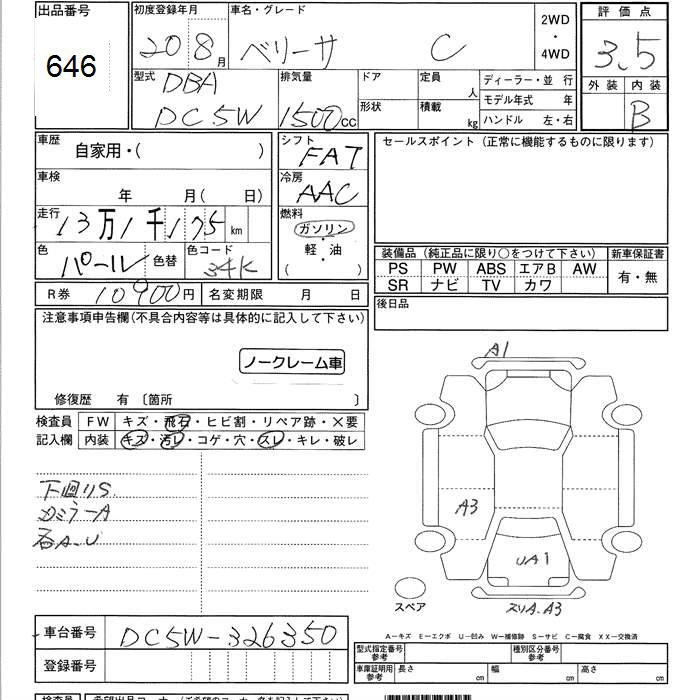 出品番号 初度登録年月 車名・グレード 2WD ・ 4WD 評価点
646 20 8月 ベリーサ C 3.5
型式 DBA DC5W 排気量 1500cc ドア 形状 定員 人 積載 kg ディーラー・並行 モデル年式 年 ハンドル 左・右 外装 内装 B
車歴 自家用・( ) シフト FAT セールスポイント(正常に機能するものに限ります)
車検 年 月( 日) 冷房 AAC
走行 13万1千175km 燃料 ガソリン ・ 軽・油 ( )
色 パール 色替 色コード 34K
装備品(純正品に限り○をつけて下さい) 新車保証書
PS PW ABS エアB AW 有・無
SR ナビ TV カワ
R券 10900円 名変期限 月 日 後日品
注意事項申告欄(不具合内容等は具体的に記入して下さい)
ノークレーム車
修復歴 有 〔箇所 〕
検査員 FW キズ・飛石・ヒビ割・リペア跡・×要
記入欄 内装 キズ・汚レ・コゲ・穴・スレ・キレ・破レ
A1
下回りS
A3
石A.U
UA1
スペア
A3
A−キズ E−エクボ U−凹み W−補修跡 S−サビ C−腐食 XX−交換済
車台番号 DC5W-326350
型式指定番号 参考 種別区分番号 参考
登録番号
車庫証明用 参考 長さ cm 幅 cm 高さ cm